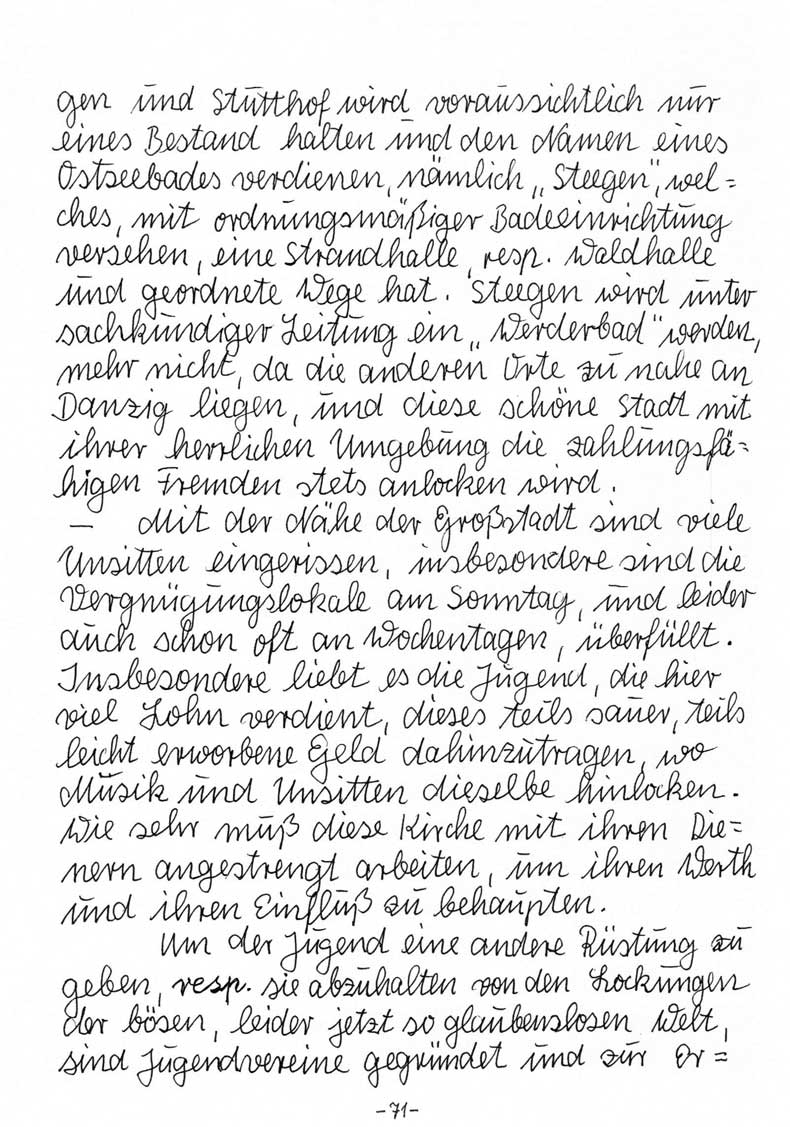 gen und Stutthof wird voraussichtlich nur
eines Bestand halten und den Namen eines
Ostseebades verdienen, nämlich „Steegen", wel=
ches, mit ordnungsmäßiger Badeeinrichtung
versehen, eine Strandhalle, resp. Waldhalle
und geordnete Wege hat. Steegen wird unter
sachkundiger Leitung ein „Werderbad" werden,
mehr nicht, da die anderen Orte zu nahe an
Danzig liegen, und diese schöne Stadt mit
ihrer herrlichen Umgebung die zahlungsfä=
higen Fremden stets anlocken wird.
— Mit der Nähe der Großstadt sind viele
Unsitten eingerissen, insbesondere sind die
Vergnügungslokale am Sonntag, und leider
auch schon oft an Wochentagen, überfüllt.
Insbesondere liebt es die Jugend, die hier
viel Lohn verdient, dieses teils sauer, teils
leicht erworbene Geld dahinzutragen, wo
Musik und Unsitten dieselbe hinlocken.
Wie sehr muß diese Kirche mit ihren Die=
nern angestrengt arbeiten, um ihren Werth
und ihren Einfluß zu behaupten.
Um der Jugend eine andere Rüstung zu
geben, resp. sie abzuhalten von den Lockungen
der bösen, leider jetzt so glaubenslosen Welt,
sind Jugendvereine gegründet und zur Er=
-71-